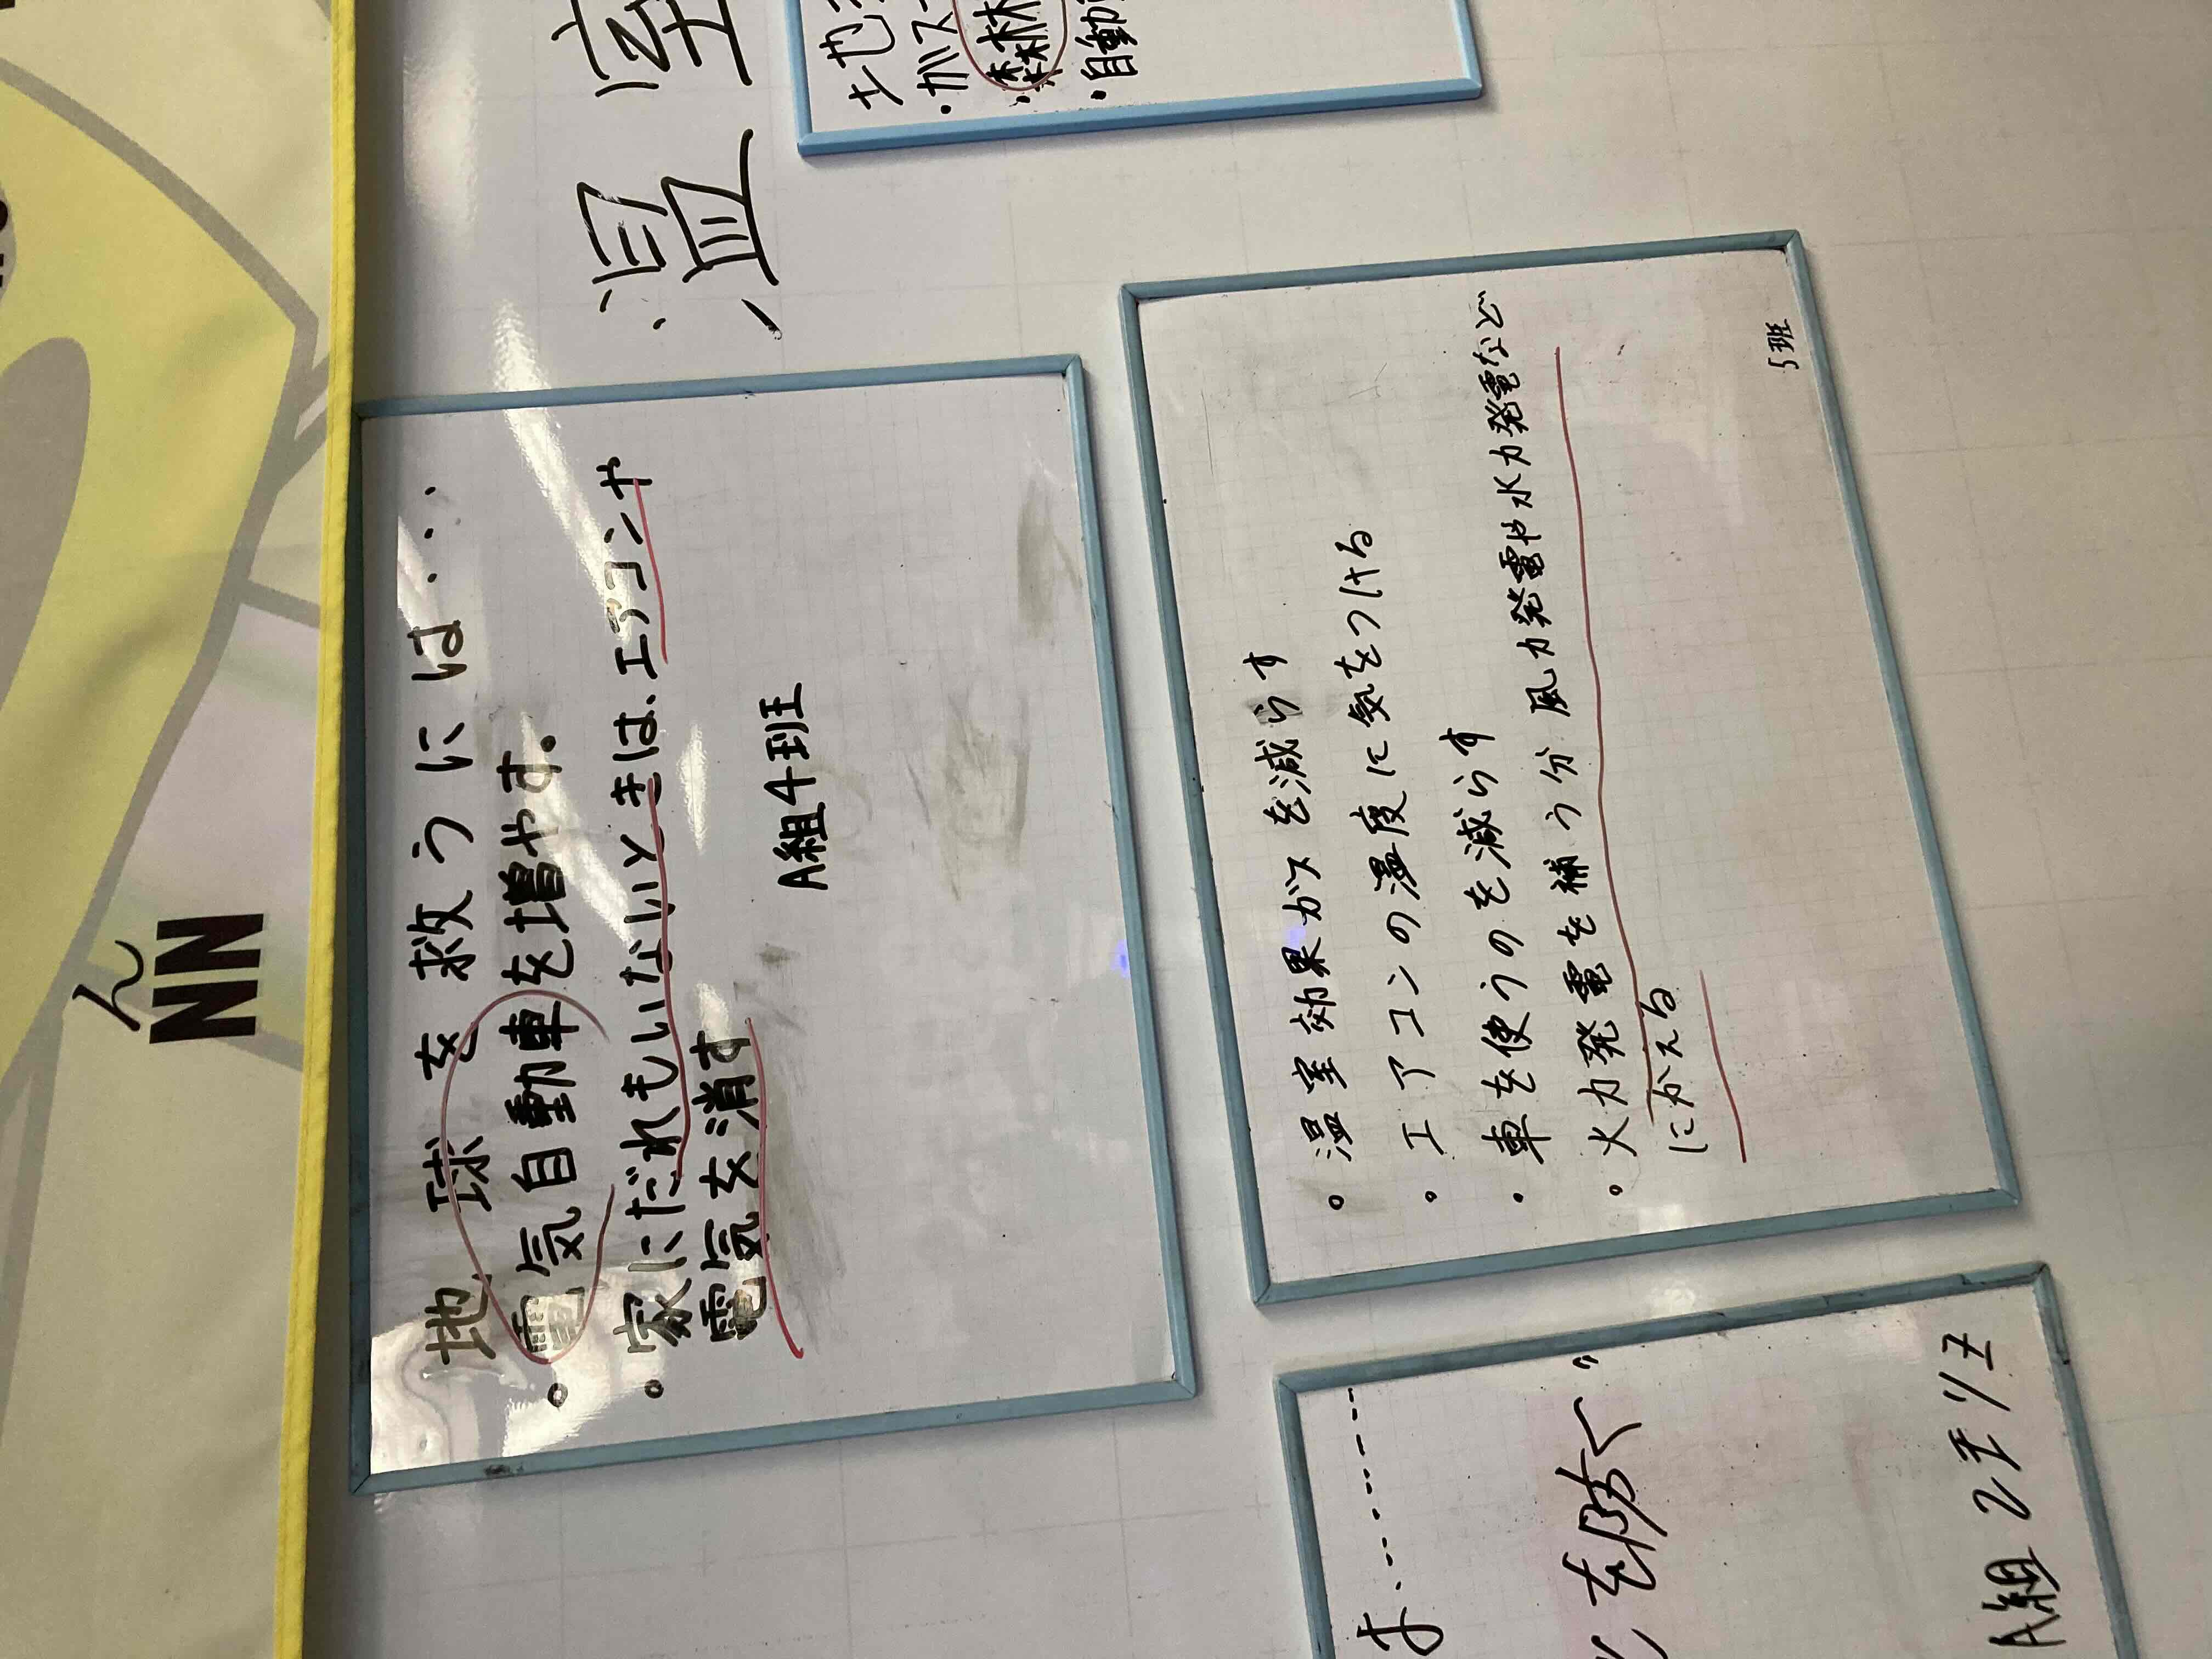 ん
NN
地球を救うには・・・
。電気自動車を増やす。
。家にだれもいないときは、エアコンや
電気を消す
A組4班
温室
・ガス
・森林
・自動
。温室効果ガスを減らす
。エアコンの温度に気をつける
・車を使うのを減らす
。火力発電を補う分 風力発電や水力発電など
にかえる
5班
を防ぐ”
A組 2班